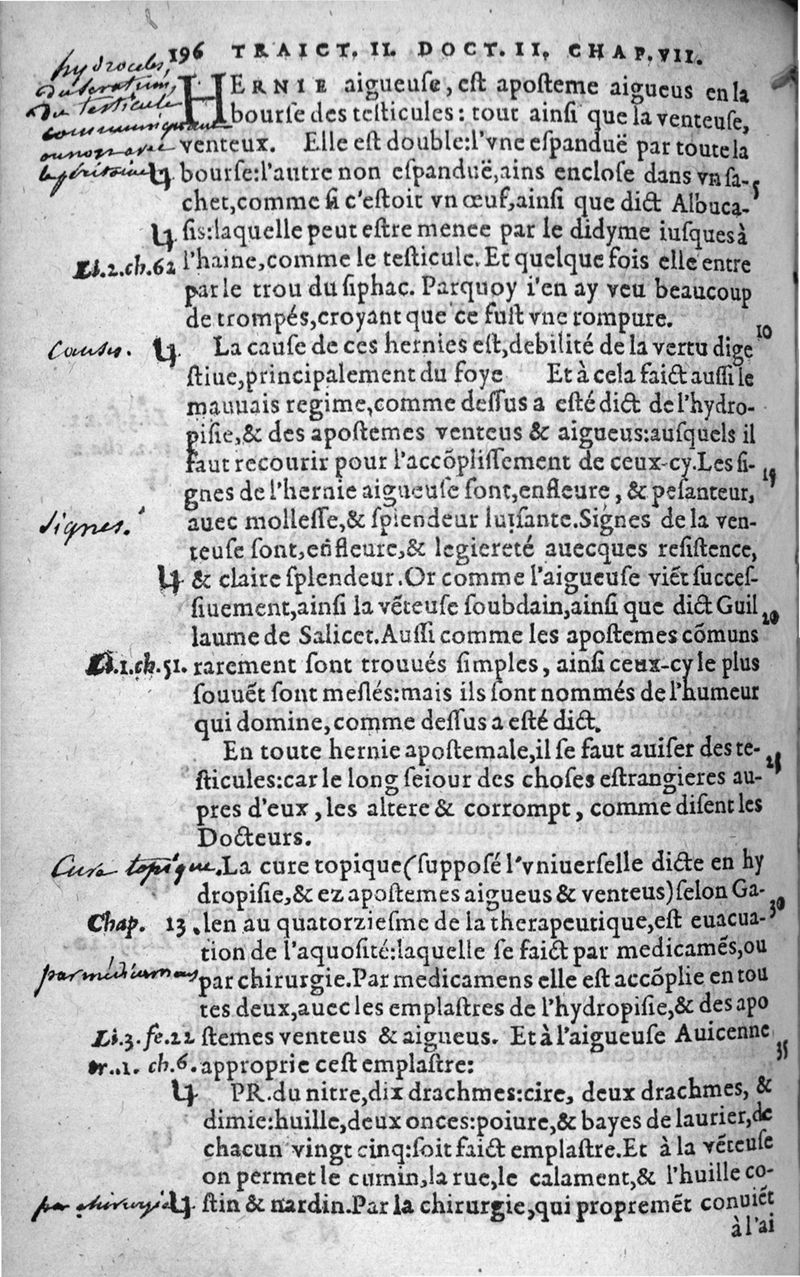 196 TRAICT. II. DOCT. II. CHAP. VII.
HERNIE aigueuſe, eſt apoſteme aigueus en la
bourſe des teſticules: tout ainſi que la venteuſe,
venteux. Elle eſt double:l'vne eſpanduë par toute la
bourſe:l'autre non eſpanduë,ains encloſe dans vn ſa-
chet,comme ſi c'eſtoit vn œuf,ainſi que dict Albuca-
ſis:laquelle peut eſtre menee par le didyme iuſques à
Li.2.ch.62 l'haine,comme le teſticule. Et quelque fois elle entre
par le trou du ſiphac. Parquoy i'en ay veu beaucoup
de trompés,croyant que ce fuſt vne rompure.
10
Cauſes. La cauſe de ces hernies eſt,debilité de la vertu dige
ſtiue,principalement du foye Et à cela faict auſſi le
mauuais regime,comme deſſus a eſté dict de l'hydro-
piſie,& des apoſtemes venteus & aigueus:auſquels il
faut recourir pour l'accõpliſſement de ceux-cy.Les ſi-
15
gnes de l'hernie aigueuſe ſont,enfleure, & peſanteur,
Signes. auec molleſſe,& ſplendeur luiſante.Signes de la ven-
teuſe ſont,enfleure,& legiereté auecques reſiſtence,
& claire ſplendeur.Or comme l'aigueuſe viẽt ſucceſ-
ſiuement,ainſi la vẽteuſe ſoubdain,ainſi que dict Guil
20
laume de Salicet.Auſſi comme les apoſtemes cõmuns
Li.1.ch.51. rarement ſont trouués ſimples, ainſi ceux-cy le plus
ſouuẽt ſont meſlés:mais ils ſont nommés de l'humeur
qui domine,comme deſſus a eſté dict.
En toute hernie apoſtemale,il ſe faut auiſer des te-
25
ſticules:car le long ſeiour des choſes eſtrangieres au-
pres d'eux, les altere & corrompt, comme diſent les
Docteurs.
Cure topique. La cure topique(ſuppoſé l'vniuerſelle dicte en hy
dropiſie,& ez apoſtemes aigueus & venteus)ſelon Ga-
30
Chap. 13. len au quatorzieſme de la therapeutique,eſt euacua-
tion de l'aquoſité:laquelle ſe faict par medicamẽs,ou
par chirurgie.Par medicamens elle eſt accõplie en tou
tes deux,auec les emplaſtres de l'hydropiſie,& des apo
Li.3.fe.22 ſtemes venteus & aigueus. Et à l'aigueuſe Auicenne
35
tr..1. ch.6. approprie ceſt emplaſtre:
PR.du nitre,dix drachmes:cire, deux drachmes, &
dimie:huille,deux onces:poiure,& bayes de laurier,de
chacun vingt cinq:ſoit faict emplaſtre.Et à la vẽteuſe
on permet le cumin,la rue,le calament,& l'huille co-
par chirurgie ſtin & nardin.Par la chirurgie,qui propremẽt conuiẽt
à l'ai